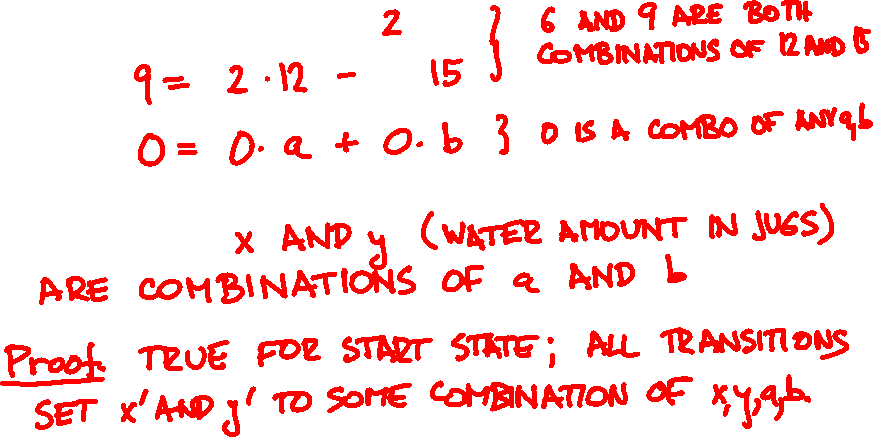 2 } 6 AND 9 ARE BOTH
9 = 2 · 12 - 15 COMBINATIONS OF 12 AND 15
0 = 0 · a + 0 · b } 0 IS A COMBO OF ANY a,b
x AND y (WATER AMOUNT IN JUGS)
ARE COMBINATIONS OF a AND b
Proof. TRUE FOR START STATE; ALL TRANSITIONS
SET x' AND y' TO SOME COMBINATION OF x,y,a,b.